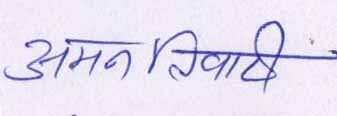 अमन तिवारी